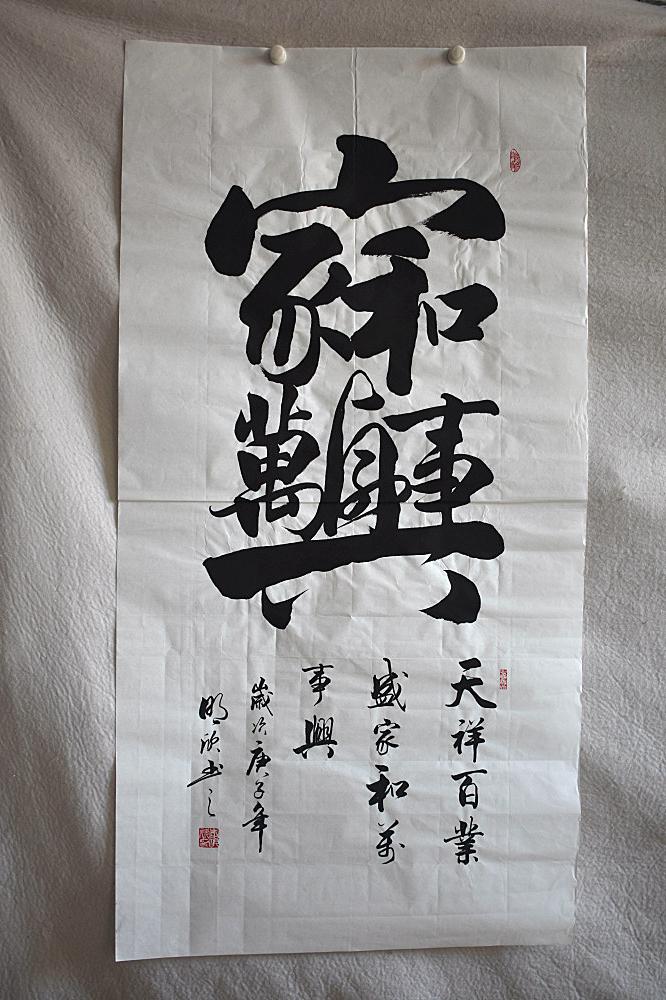 家和萬事興
天祥百業
盛家和萬
事興
歲次庚子年
明欣书之